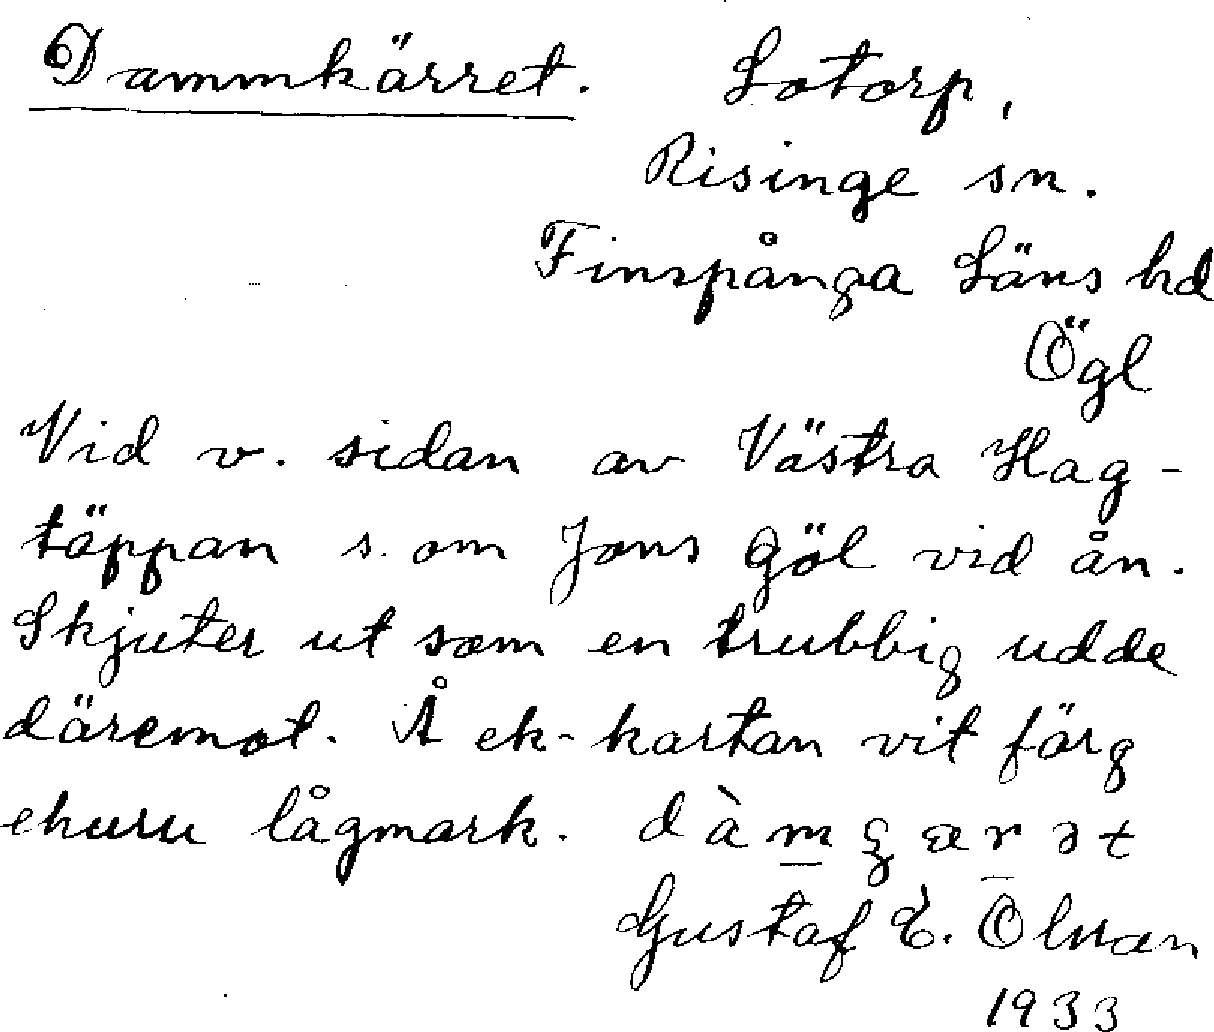 Dammkärret. Lotorp,
Risinge sn.
Finspånga Läns hd
Ögl
Vid v. sidan av Västra Hag-
täppan s. om Jons Göl vid ån.
Skjuter ut som en trubbig udde
däremot. Å ek-kartan vit färg
ehuru lågmark. dàmʒærət
Gustaf E.
1933